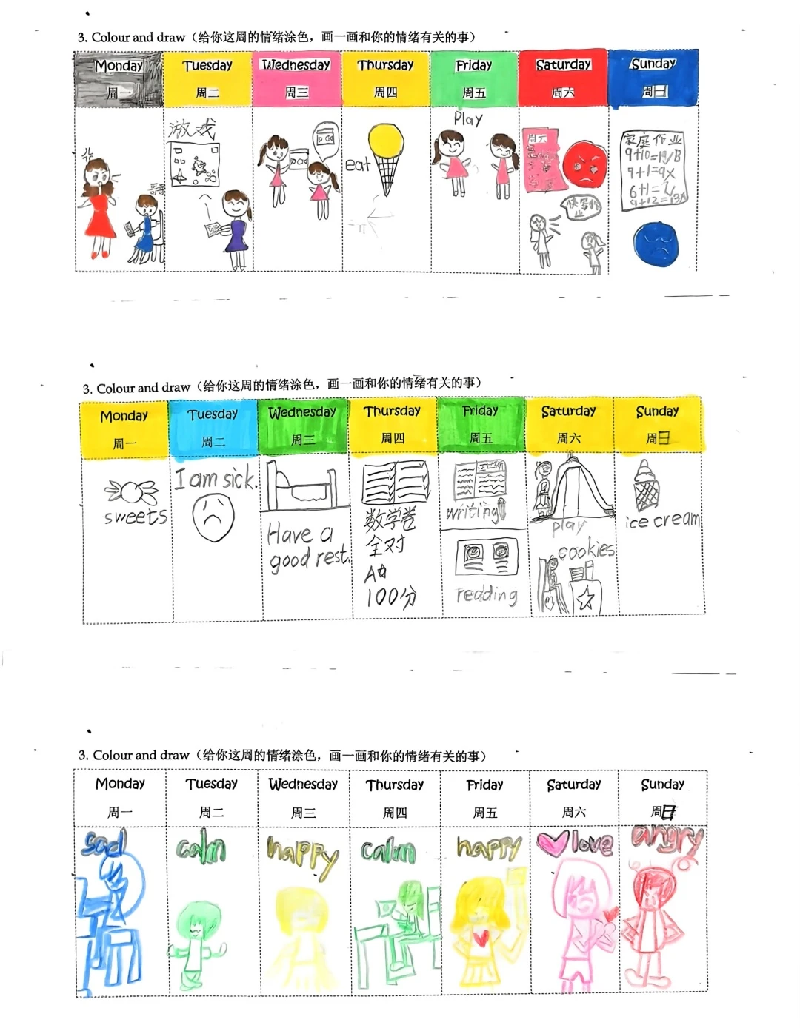 3. Colour and draw（给你这周的情绪涂色，画一画和你的情绪有关的事）
Monday Tuesday Wednesday Thursday Friday Saturday Sunday
周一 周二 周三 周四 周五 周六 周日
游戏
eat
Play
家庭作业
9+1=9X
3. Colour and draw（给你这周的情绪涂色，画一画和你的情绪有关的事）
Monday Tuesday Wednesday Thursday Friday Saturday Sunday
周一 周二 周三 周四 周五 周六 周日
sweets
I am sick.
Have a
good rest.
数学卷
全对
100分
writing
reading
play
cookies
ice cream
3. Colour and draw（给你这周的情绪涂色，画一画和你的情绪有关的事）
Monday Tuesday Wednesday Thursday Friday Saturday Sunday
周一 周二 周三 周四 周五 周六 周日
sad calm happy calm happy love angry